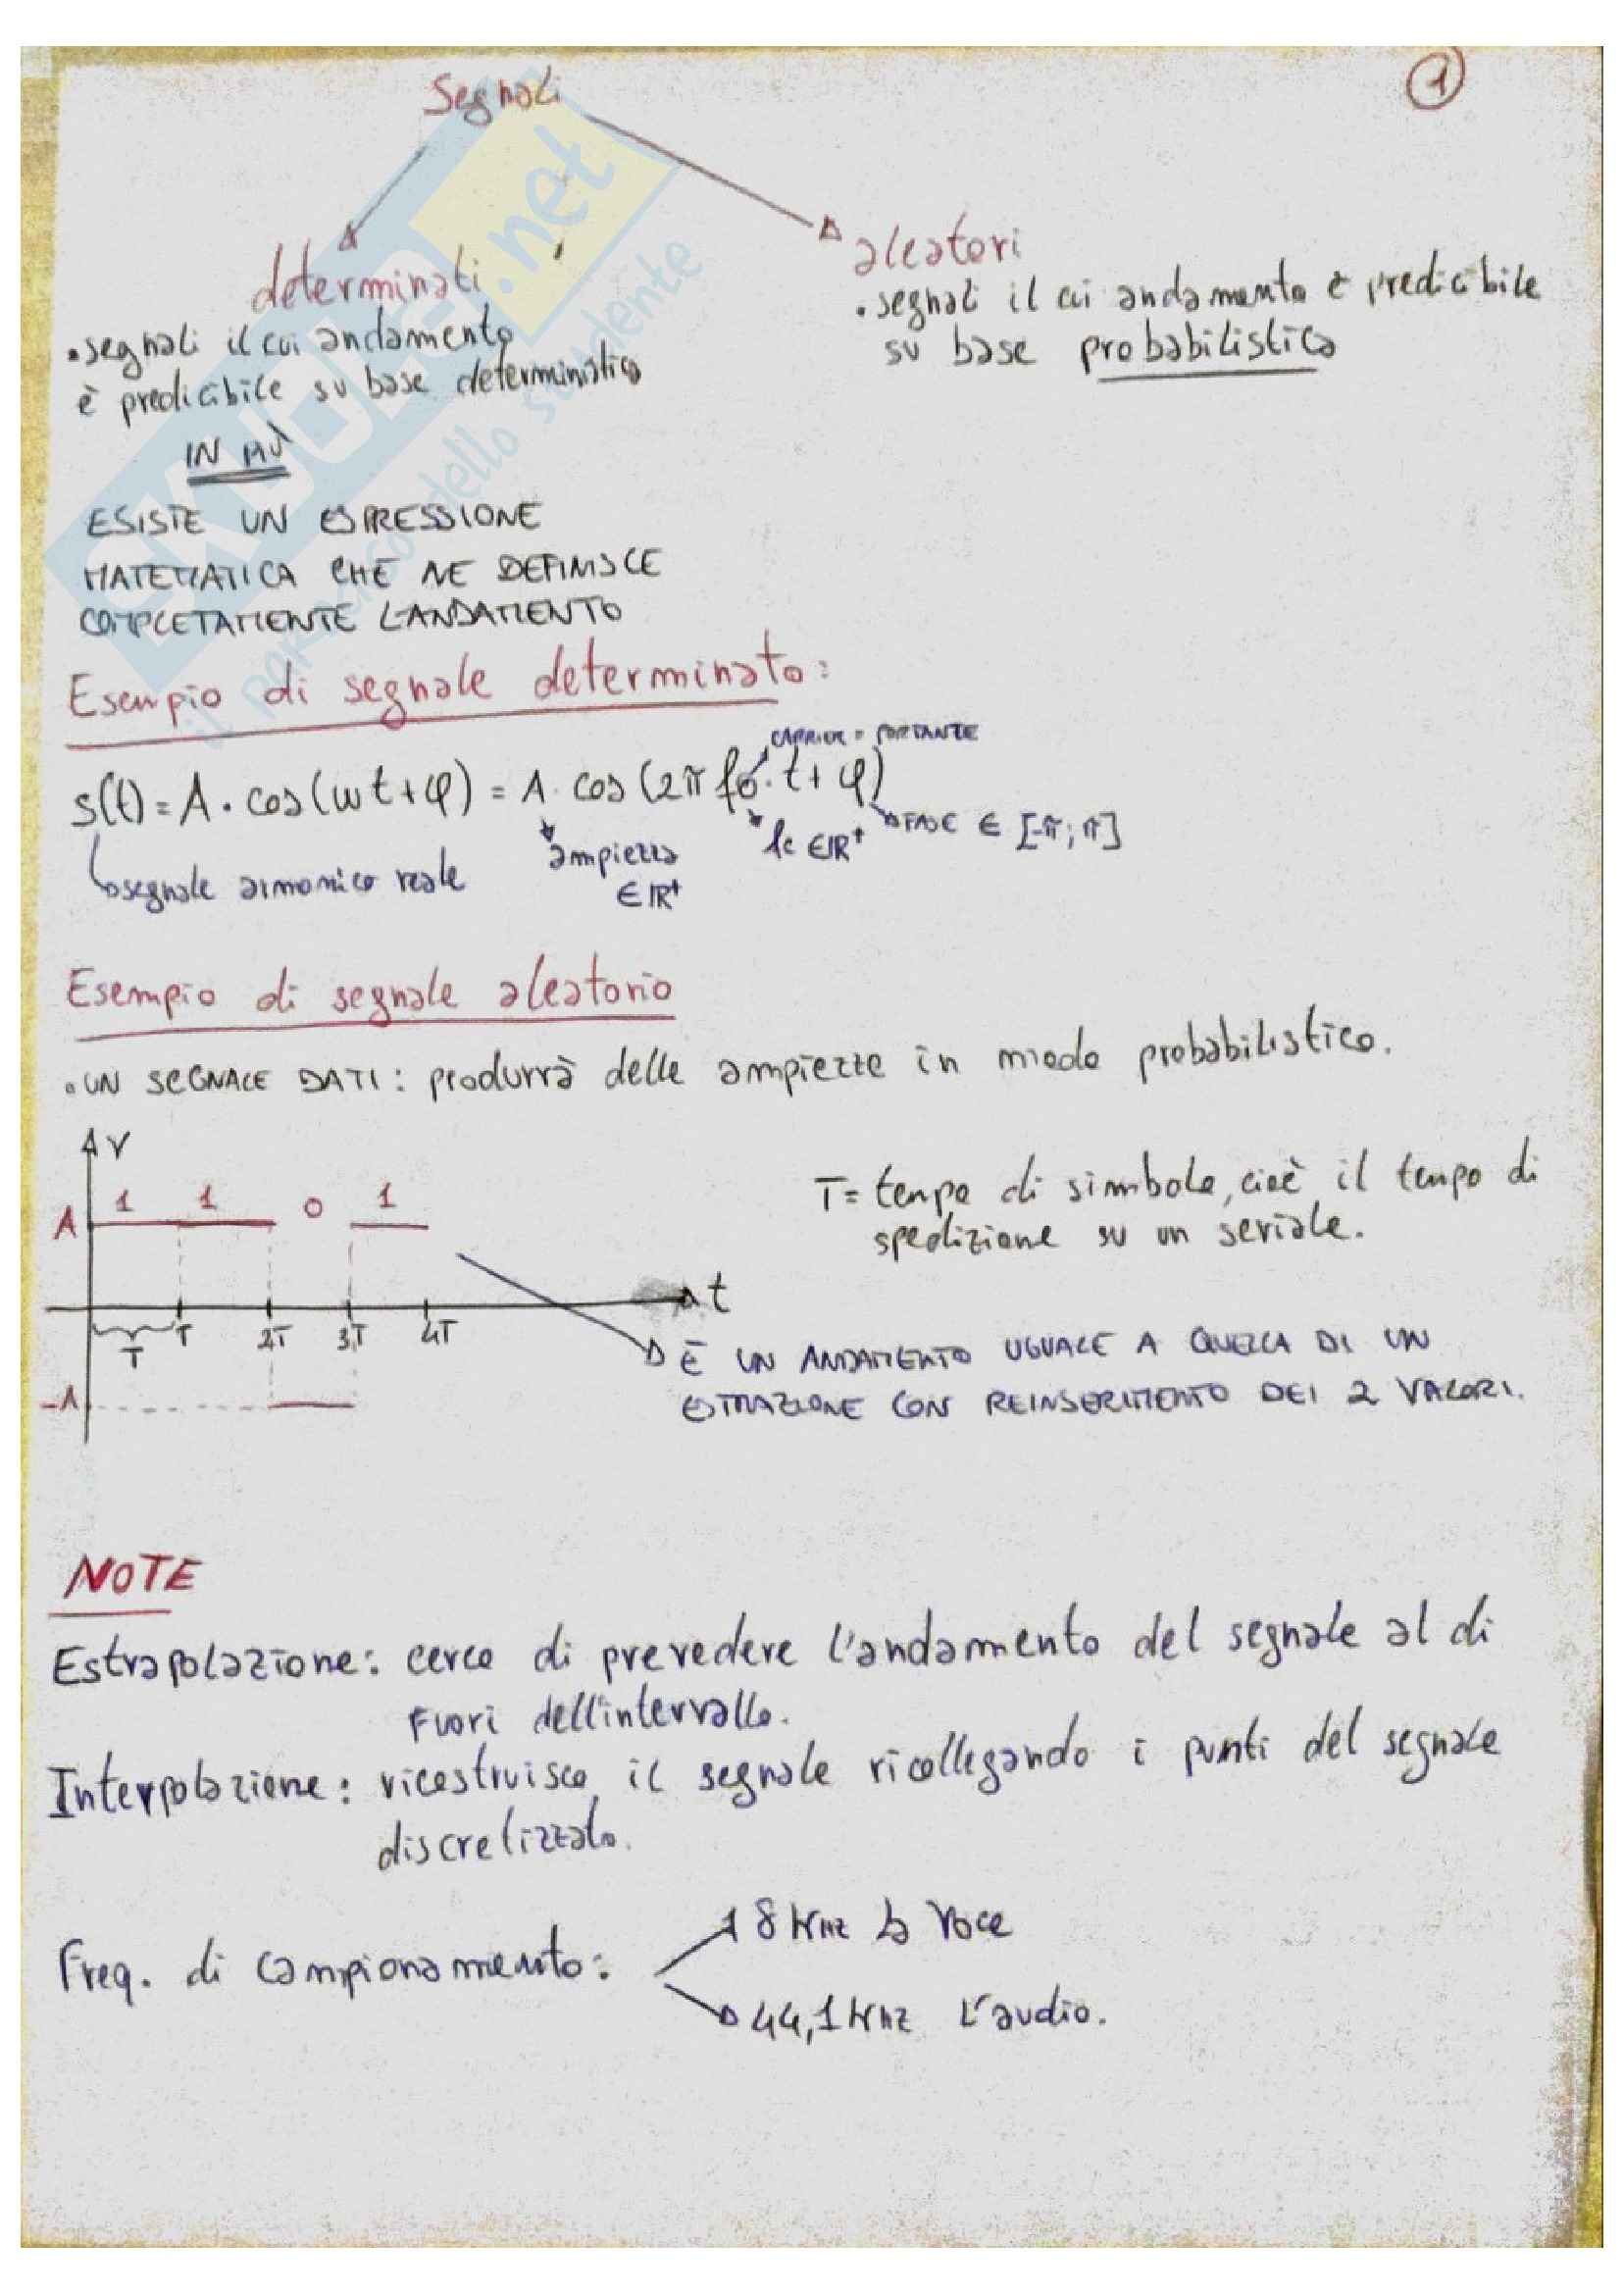 1
Segnali
determinati
aleatori
• segnali il cui andamento
è predicibile su base deterministica
• segnali il cui andamento è predicibile
su base probabilistica
IN PIÙ
ESISTE UN ESPRESSIONE
MATEMATICA CHE NE DEFINISCE
COMPLETAMENTE L'ANDAMENTO
Esempio di segnale determinato:
CARRIER = PORTANTE
s(t) = A · cos(ωt+φ) = A · cos(2π fc · t + φ)
segnale armonico reale
ampiezza
∈ IR+
fc ∈ IR+
FASE ∈ [-π; π]
Esempio di segnale aleatorio
• UN SEGNALE DATI: produrrà delle ampiezze in modo probabilistico.
V
1 1 0 1
A
T 2T 3T 4T
t
T
-A
T = tempo di simbolo, cioè il tempo di
spedizione su un seriale.
È UN ANDAMENTO UGUALE A QUELLA DI UN
ESTRAZIONE CON REINSERIMENTO DEI 2 VALORI.
NOTE
Estrapolazione: cerco di prevedere l'andamento del segnale al di
fuori dell'intervallo.
Interpolazione: ricostruisco il segnale ricollegando i punti del segnale
discretizzato.
Freq. di campionamento:
8 KHz la voce
44,1 KHz l'audio.
SKUOLA.net
il paradiso dello studente